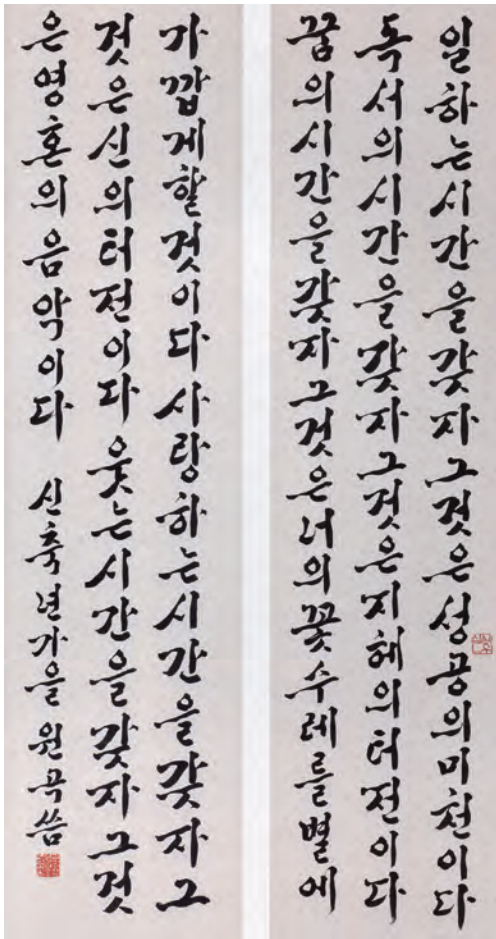 일하는시간을갖자그것은성공의미천이다
독서의시간을갖자그것은지혜의터전이다
꿈의시간을갖자그것은너의꽃수레를별에
가깝게할것이다사랑하는시간을갖자그
것은신의터전이다웃는시간을갖자그것
은영혼의음악이다 신축년가을 원곡씀